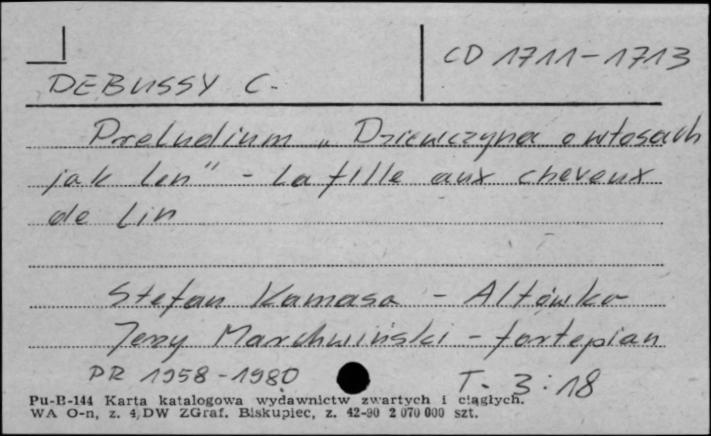 CD 1711-1713
DEBUSSY C.
Preludium „Dziewczyna o włosach
jak len" - La fille aux cheveux
de lin
Stefan Kamasa - Altówka
Jerzy Marchwiński - fortepian
PR 1958-1980 T. 3:18
Pu-B-144 Karta katalogowa wydawnictw zwartych i ciągłych.
WA O-n, z. 4, DW ZGraf. Biskupiec, z. 42-90 2 070 000 szt.